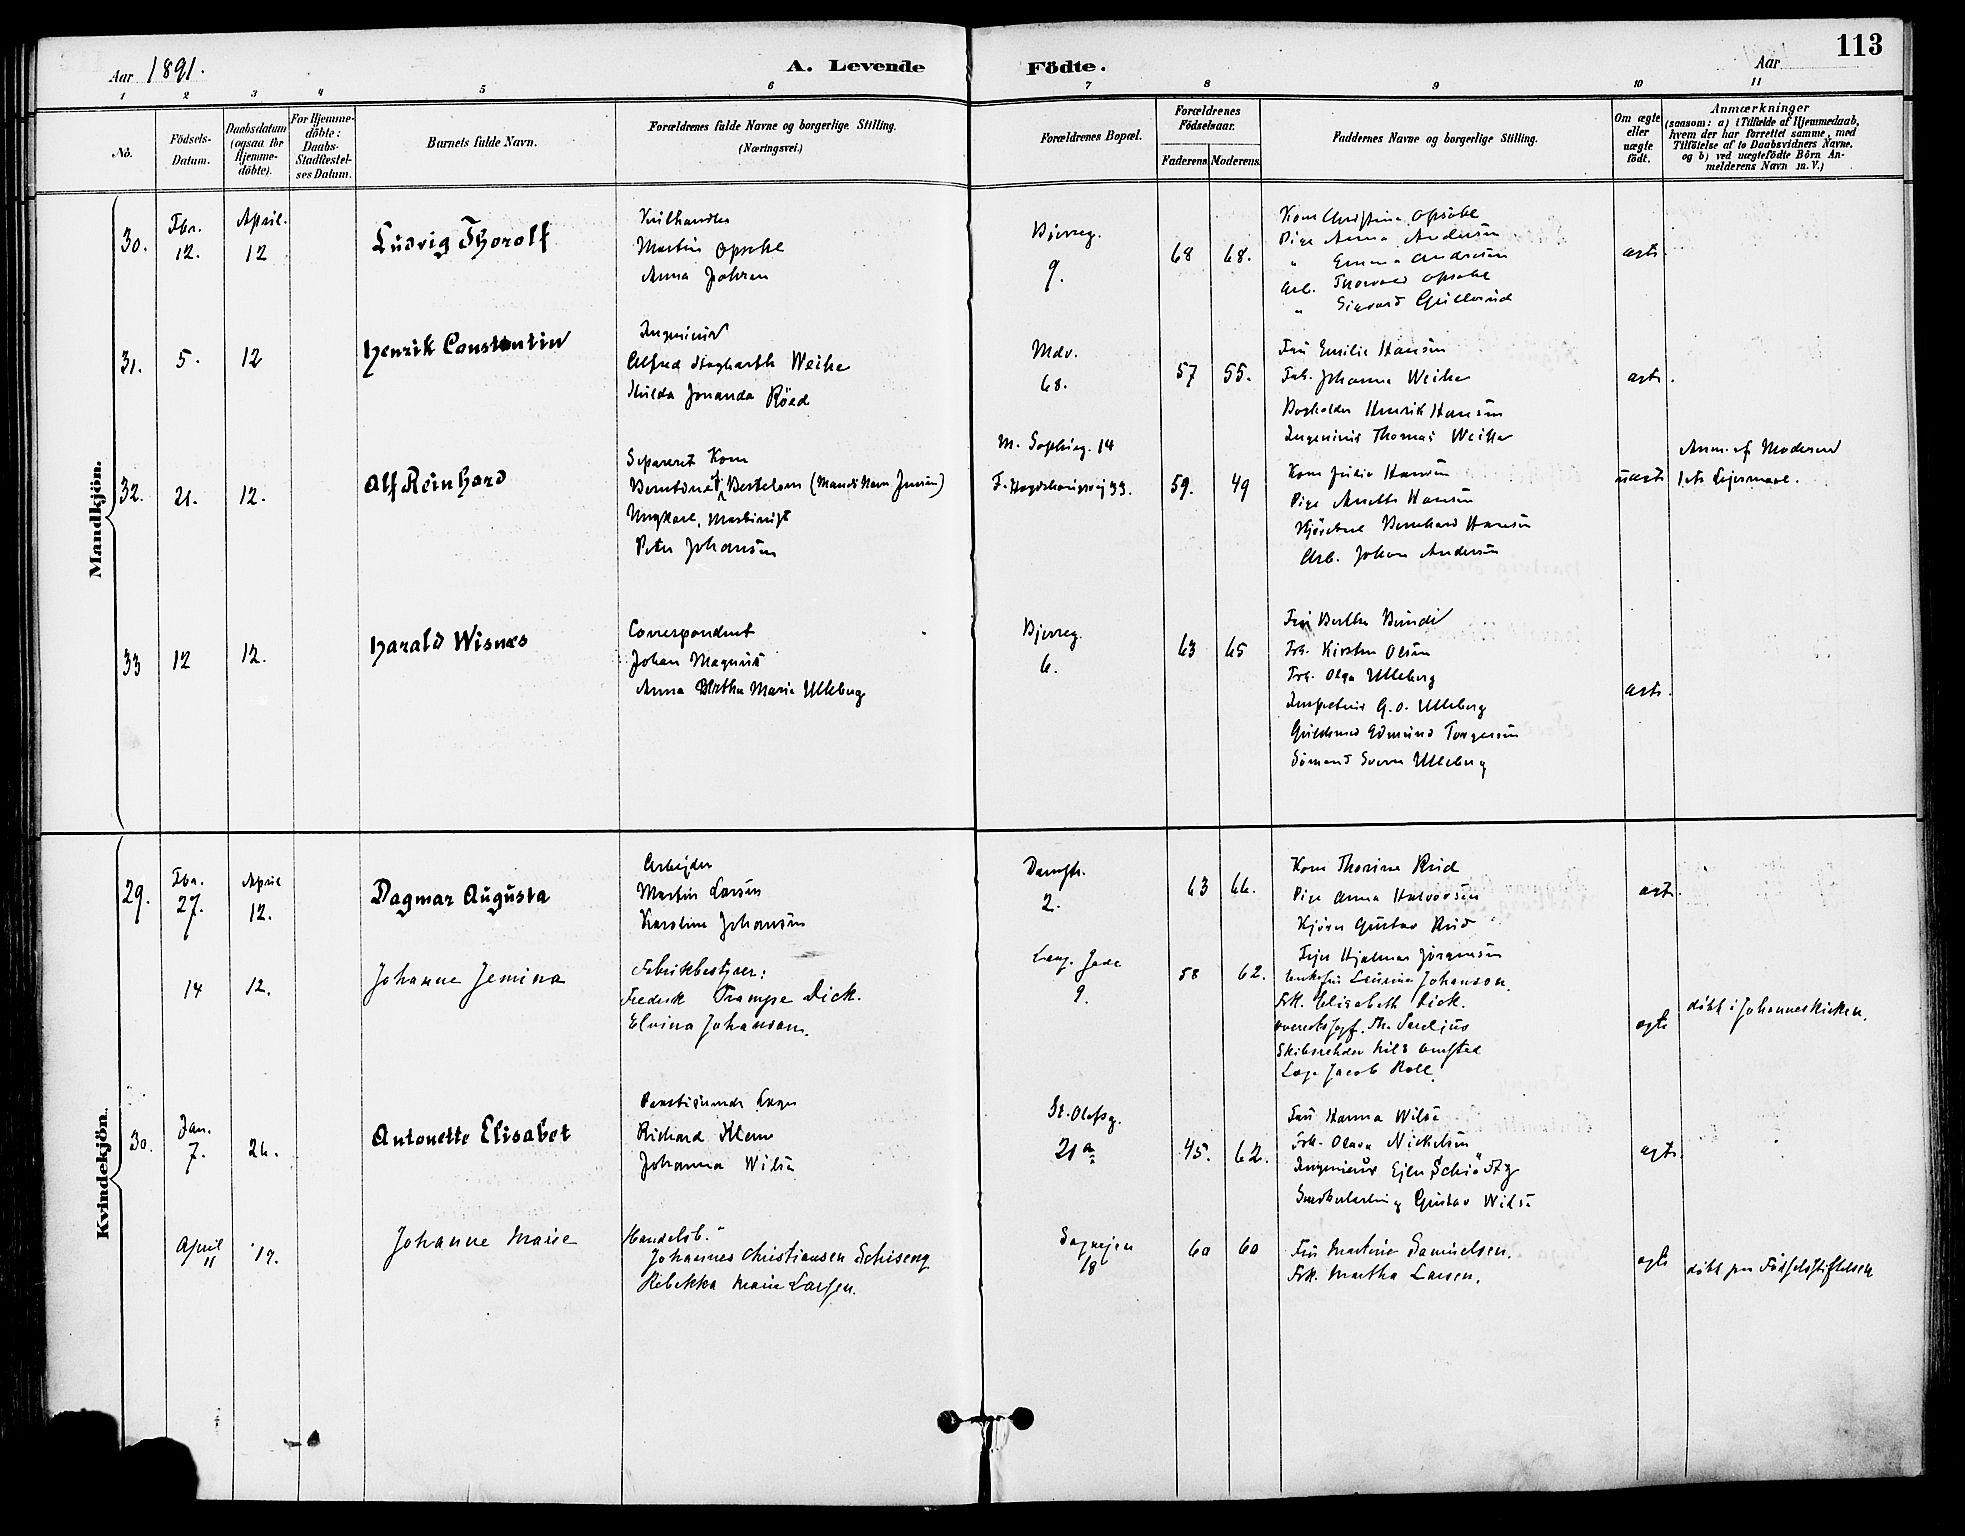 113
Aar 1891.
A. Levende Födte.
Aar
1 2 3 4 5 6 7 8 9 10 11
No.
Födsels-Datum.
Daabsdatum (ogsaa for Hjemme-döbte).
For Hjemme-döbte: Daabs-Stadfæstel-ses Datum.
Barnets fulde Navn.
Forældrenes fulde Navne og borgerlige Stilling.
(Næringsvei.)
Forældrenes Bopæl.
Forældrenes Födselsaar.
Faderens. Moderens.
Faddernes Navne og borgerlige Stilling.
Om ægte eller uægte födt.
Anmærkninger
(saasom: a) i Tilfælde af Hjemmedaab, hvem der har forrettet samme, med Tilföielse af to Daabsvidners Navne, og b) ved uægtefödte Börn An-melderens Navn m. V.)
Mandkjön.
30.
Fbr. 12.
April. 12
Ludvig Thorolf
Martin Opsahl
Anna Johnsen
Bjerreg.
9.
68 68.
Kone Christine Opsahl
Pige Anna Andersen
" Emma Andersen
Arb. Thorvald Opsahl
" Sigvard Gulbrand
ægte.
31.
5.
12
Henrik Constantin
Ingeniør
Alfred Hogharth Weihe
Hulda Jonanda Röed
Mdv.
68.
57 55.
Fru Emilie Hansen
Frk. Johanna Weihe
Bogholder Henrik Hansen
Ingeniør Thomas Weihe
ægte.
32.
21.
12.
Alf Reinhard
Separeret Kone
(Mands Navn Jensen)
Ungkarl, Maskinist
Peter Johansen
M. Sophieg. 14
59. 49
Kone Julie Hansen
Pige Anette Hansen
Bernhard Hansen
Arb. Johan Andersen
uægte
Anm. af Moderen
1ste Leiermaal.
33
12
12.
Harald Wisnæs
Correspondent
Johan Magnus
Anna Birthe Marie Ulleberg
Bjerreg.
6.
63 65
Fru Berthe
Frk. Kirsten Olsen
Frk. Olga Ulleberg
G. O. Ulleberg
Guldsmed Edmund Torgersen
Sömand Sverre Ulleberg
ægte.
Kvindekjön.
29.
Fbr. 27.
April 12.
Dagmar Augusta
Arbejder
Martin Larsen
Karoline Johansen
Damstr.
2.
63 66.
Kone Thorine Ruud
Pige Anna Halvorsen
Gustav Ruud
Hjalmar Jörgensen
ægte.
14
12.
Johanne Jemina
Fabrikbestyrer:
Frederik Trampe Dick.
Elvina Johanson.
Lang. Gade
9.
58 62.
Enkefru Laurine Johanson.
Frk. Elisabeth Dick.
Skibsreder Nils
Læge Jacob Roll.
ægte
döbt i Johanneskirken.
30.
Jan. 7.
26.
Antonette Elisabet
Praktiserende Læge
Richard Klem
Johanna Wilse
St. Olafsg.
21 a
45. 62.
Fru Hanna Wilse
Frk. Olava Nickelsen
Ingeniör Ejler Schiödtz
Gustav Wilse
ægte.
April 11
12.
Johanne Marie
Handelsb.
Johannes Christiansen Schiseng
Rebekka Marie Larsen.
Sagvejen
18
60 60
Fru Martine Samuelsen.
Frk. Martha Larsen.
ægte
döbt paa Födselsstiftelsen